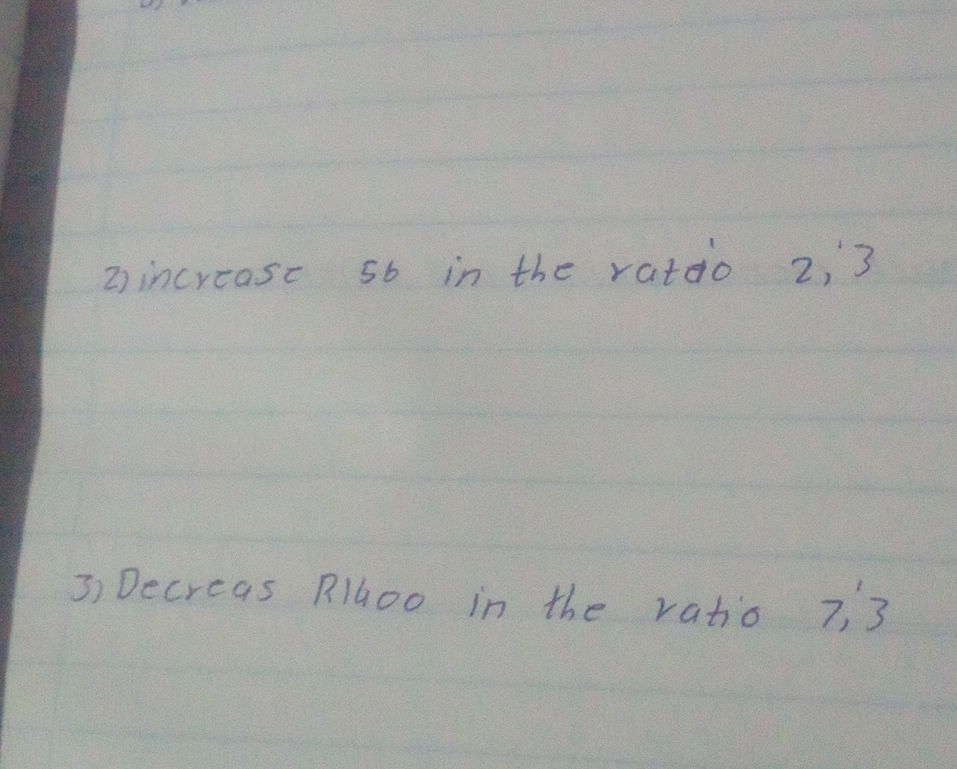 2) increase 56 in the ratio 2:3
3) Decreas R1400 in the ratio 7:3